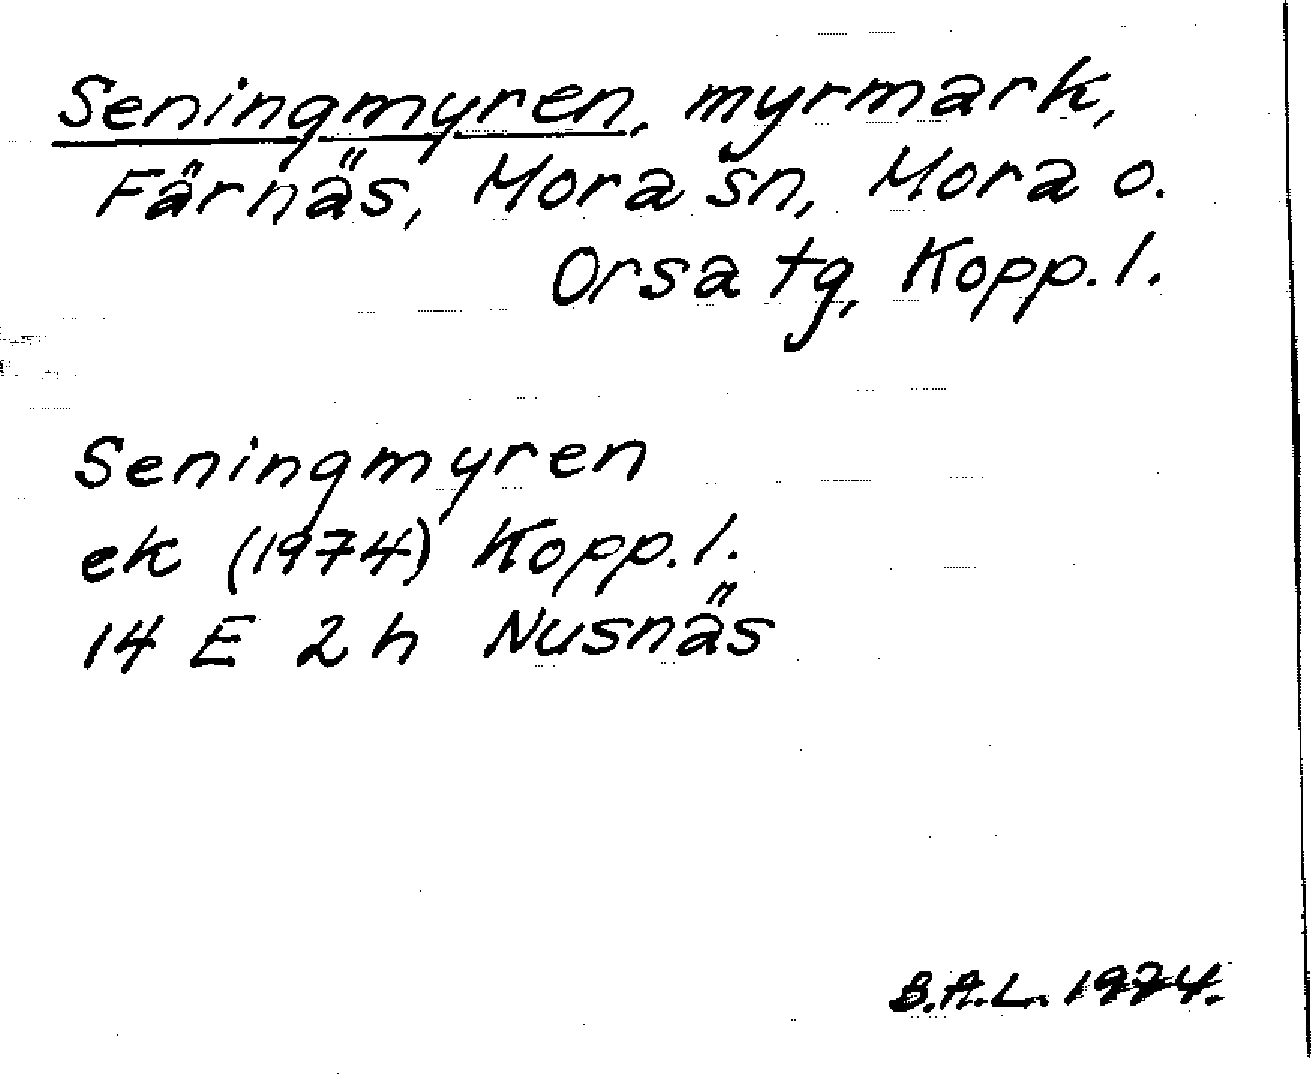 Seningmyren, myrmark,
Färnäs, Mora sn, Mora o.
Orsa tg, Kopp.l.
Seningmyren
ek (1974) Kopp.l.
14 E 2 h Nusnäs
B.A.L. 1974.